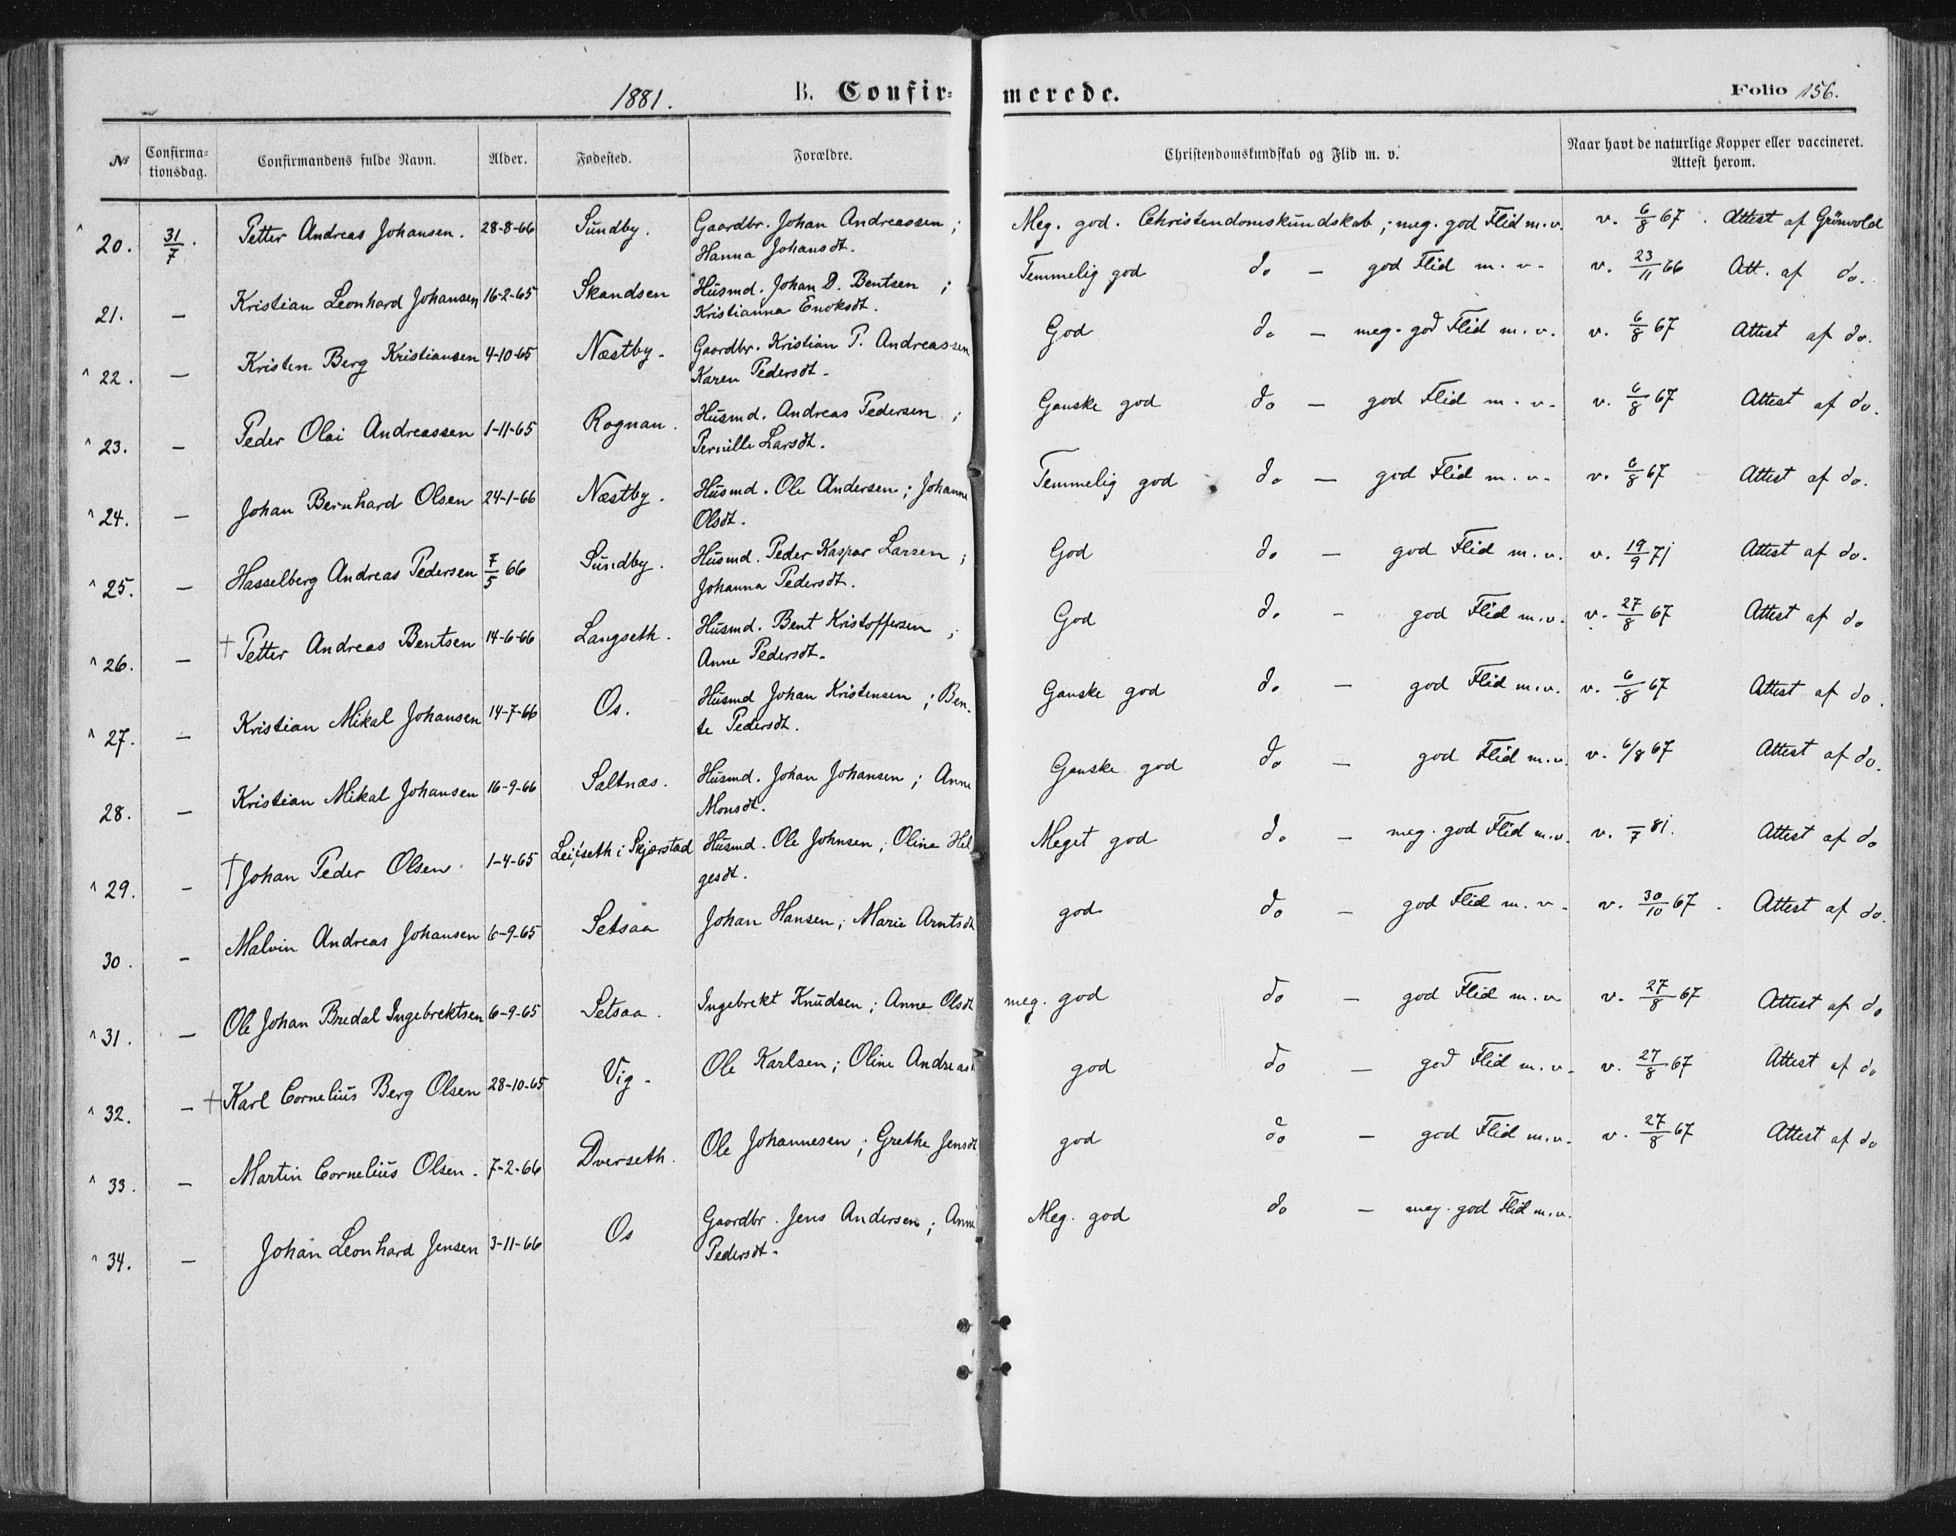 1881. B. Confir= merede. Folio 156.
№ Confirma= tionsdag. Confirmandens fulde Navn. Alder. Fødested. Forældre. Christendomskundskab og Flid m. v. Naar havt de naturlige Kopper eller vaccineret. Attest herom.
20. 31/7. Petter Andreas Johansen. 28-8-66 Sundby. Gaardbr. Johan Andreassen; Meg. god. Christendomskundskab; meg. god Flid m. v. v. 6/8 67. Attest af Grönvold
Hanna Johansdt.
21. — Kristian Leonhard Johansen 16-2-65 Skandsen Husmd. Johan D. Bentsen; Temmelig god do — god Flid m. v. v. 23/11 66 Att. af do.
Kristianna Enoksdt.
22. — Kristen Berg Kristiansen 4-10-65 Næstby. Gaardbr. Kristian P. Andreassen God do — meg. god Flid m. v. v. 6/8 67 Attest af do.
Karen Pedersdt.
23. — Peder Olai Andreassen 1-11-65 Rognan. Husmd. Andreas Pedersen; Ganske god do — god Flid m. v. v. 6/8 67 Attest af do.
Pernille Larsdt.
24. — Johan Bernhard Olsen 24-1-66 Næstby. Husmd. Ole Andersen; Johanne Temmelig god do — god Flid m. v. v. 6/8 67 Attest af do.
Olsdt.
25. — Hasselberg Andreas Pedersen 7/5 66 Sundby. Husmd. Peder Kaspar Larsen; God do — god Flid m. v. v. 19/9 71 Attest af do.
Johanna Pedersdt.
26. — † Petter Andreas Bentsen 14-6-66 Langseth. Husmd. Bent Kristoffersen; God do — god Flid m. v. v. 27/8 67 Attest af do
Anne Pedersdt.
27. — Kristian Mikal Johansen 14-7-66 Os. Husmd Johan Kristensen; Ben- Ganske god do — god Flid m. v. v. 6/8 67 Attest af do.
te Pedersdt.
28. — Kristian Mikal Johansen 16-9-66 Saltnæs. Husmd. Johan Johansen; Anne Ganske god do — god Flid m. v. v. 6/8 67 Attest af do.
Monsdt.
29. — † Johan Peder Olsen 1-4-65 i Skjerstad Husmd. Ole Johnsen; Oline Hel Meget god do — meg. god Flid m. v. v. —/7 81. Attest af do
gesdt.
30. — Malvin Andreas Johansen 6-9-65 Setsaa Johan Hansen; Marie Arntsdt god do — god Flid m. v. v. 30/10 67. Attest af do.
31. — Ole Johan Bredal Ingebrektsen 6-9-65 Setsaa. Ingebrekt Knudsen; Anne Olsdt meg. god do — god Flid m. v v. 27/8 67 Attest af do
32. — † Karl Cornelius Berg Olsen 28-10-65 Vig. Ole Karlsen; Oline Andreas god do — god Flid m. v. v. 27/8 67 Attest af do
33. — Martin Cornelius Olsen. 7-2-66 Dverseth. Ole Johannesen; Grethe Jensdt god do — god Flid m. v. v. 27/8 67 Attest af do
34. — Johan Leonhard Jensen 3-11-66 Os Gaardbr. Jens Andersen; Anne Meg. god do — meg. god Flid m. v.
Pedersdt.